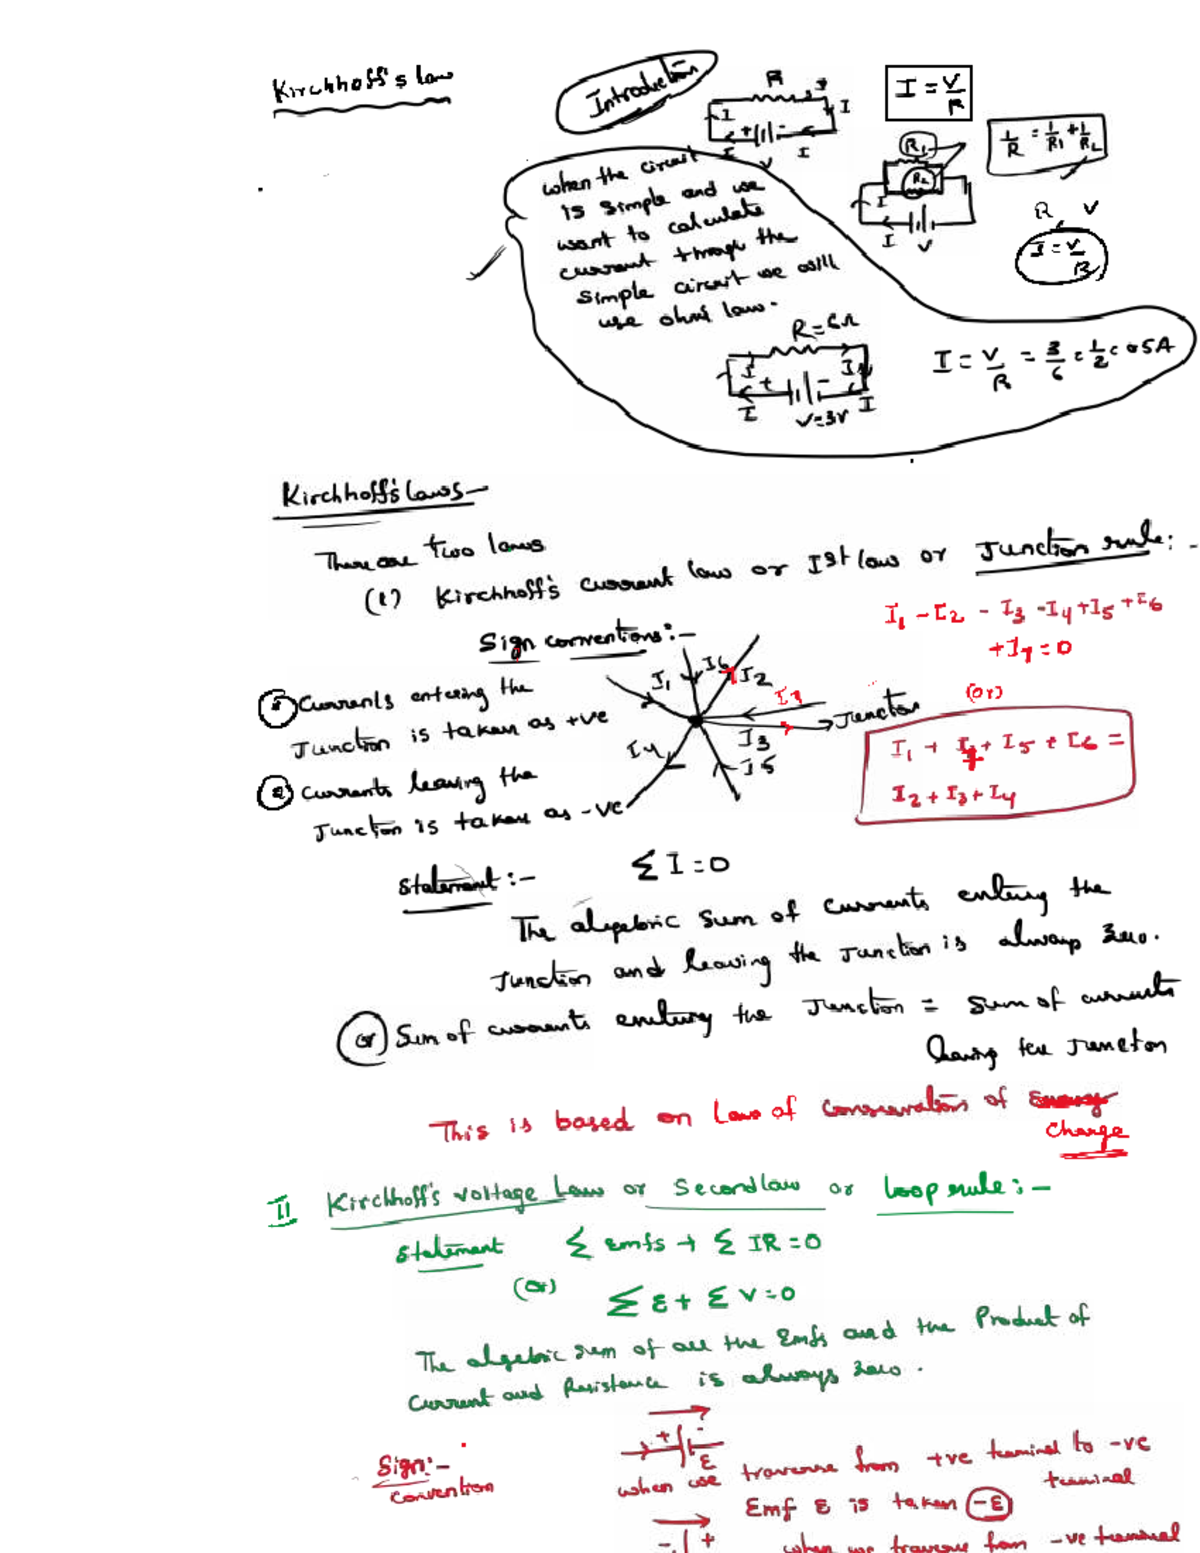 Kirchhoff's law
Introduction
R
I
I
+ -
I
V
I
I = V/R
R1
R2
I
I
V
1/R = 1/R1 + 1/R2
R, V
I = V/R
when the circuit
is simple and we
want to calculate
current through the
simple circuit we will
use ohm's law.
R=6Ω
I
I
+ -
I
I
V=3V
I = V/R = 3/6 = 1/2 = 0.5A
Kirchhoff's Laws-
There are two laws
(1) Kirchhoff's current law or Ist law or Junction rule:-
I1 - I2 - I3 - I4 + I5 + I6
+ I7 = 0
Sign conventions:-
① Currents entering the
Junction is taken as +ve
② Currents leaving the
Junction is taken as -ve
I1
I6
I2
I7
Junction
I3
I4
I5
(or)
I1 + I7 + I5 + I6 =
I2 + I3 + I4
Statement:-
Σ I = 0
The algebric sum of currents entering the
Junction and leaving the Junction is always zero.
or Sum of currents entering the Junction = sum of currents
leaving the Junction
This is based on Law of conservation of Energy
Charge
II Kirchhoff's voltage Law or Second law or loop rule:-
Statement Σ emfs + Σ IR = 0
(or)
Σ ε + Σ V = 0
The algebric sum of all the Emfs and the Product of
Current and Resistance is always zero.
+ -
ε
Sign:-
Convention
when we traverse from +ve terminal to -ve
terminal
Emf ε is taken -ε
- +
when we traverse from -ve terminal